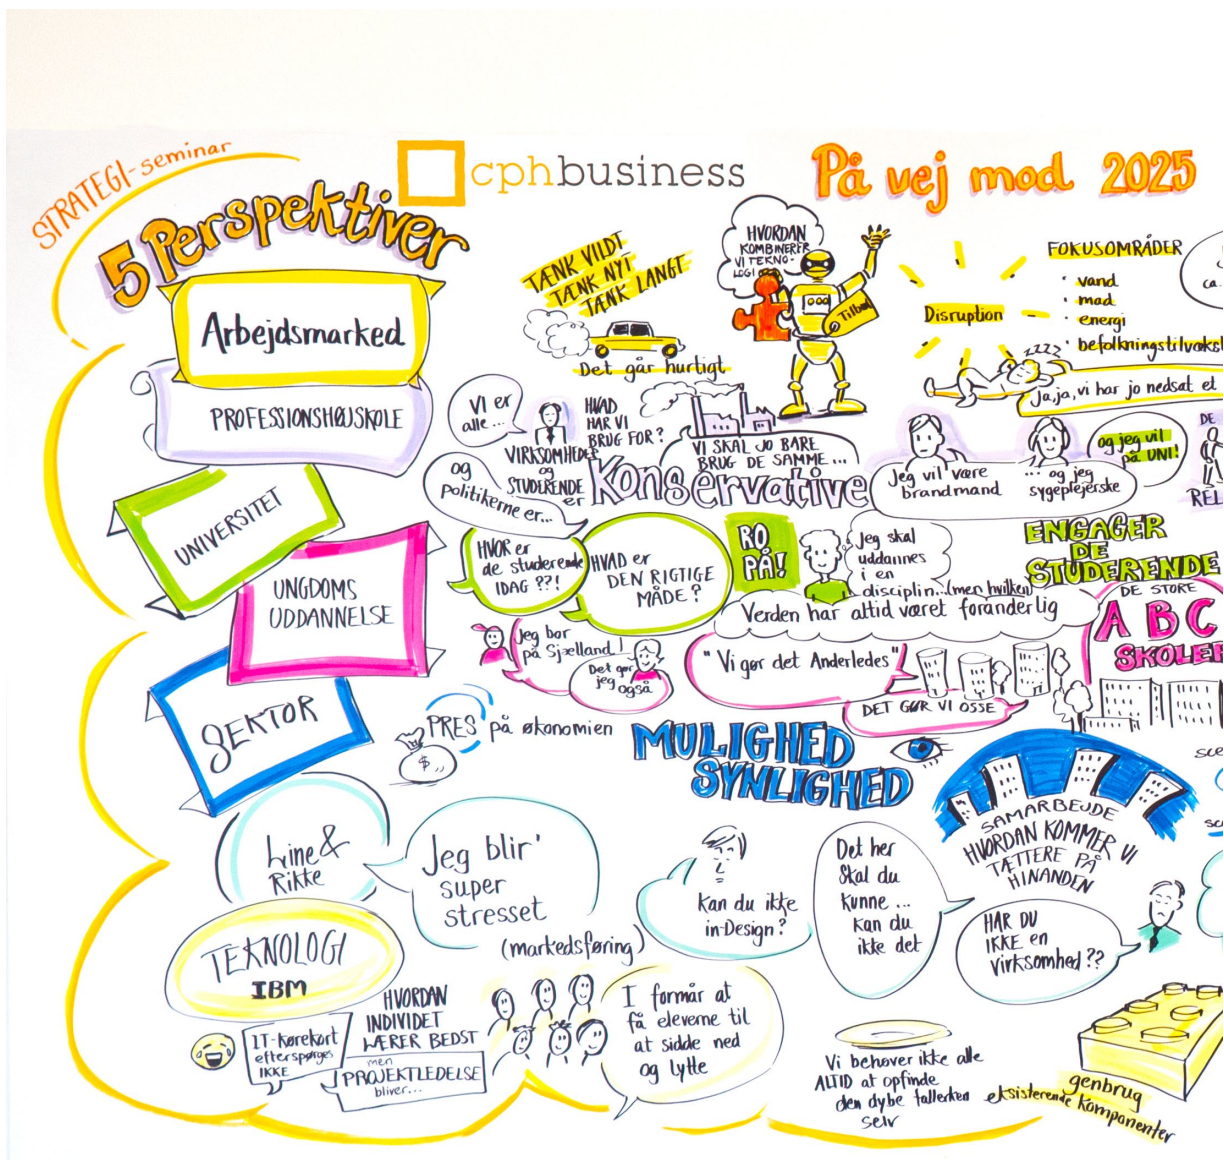 STRATEGI-seminar
5 Perspektiver
cphbusiness
På vej mod 2025
Arbejdsmarked
PROFESSIONSHØJSKOLE
UNIVERSITET
UNGDOMS
UDDANNELSE
SEKTOR
TÆNK VILDT
TÆNK NYT
TÆNK LANGT
Det går hurtigt
HVORDAN
KOMBINERER
VI TEKNO-
LOGI
Tilbud
Disruption
FOKUSOMRÅDER
· vand
· mad
· energi
· befolkningstilvækst
ca.
zzzz
Ja, ja, vi har jo nedsat et
VI er
alle...
VIRKSOMHEDER
og
STUDERENDE
er
HVAD
HAR VI
BRUG FOR?
VI SKAL JO BARE
BRUG DE SAMME...
Konservative
og
politikerne er...
Jeg vil være
brandmand
... og jeg
sygeplejerske
og jeg vil
på UNI!
DE
REL
HVOR er
de studerende
IDAG ??!
HVAD er
DEN RIGTIGE
MÅDE?
RO
PÅ!
Jeg skal
uddannes
i en
disciplin... (men hvilken)
Verden har altid været foranderlig
ENGAGER
DE
STUDERENDE
DE STORE
A B C
SKOLER
Jeg bor
på Sjælland!
Det gør
jeg også
"Vi gør det Anderledes"
DET GØR VI OSSE
PRES på økonomien
$
MULIGHED
SYNLIGHED
SAMARBEJDE
HVORDAN KOMMER VI
TÆTTERE PÅ
HINANDEN
sce
sc
Line &
Rikke
Jeg blir'
super
stresset
(markedsføring)
kan du ikke
in-Design?
Det her
skal du
kunne...
kan du
ikke det
HAR DU
IKKE en
virksomhed??
TEKNOLOGI
IBM
IT-kørekort
efterspørges
IKKE
HVORDAN
INDIVIDET
LÆRER BEDST
men
PROJEKTLEDELSE
bliver...
I formår at
få eleverne til
at sidde ned
og lytte
Vi behøver ikke alle
ALTID at opfinde
den dybe tallerken
selv
genbrug
eksisterende komponenter